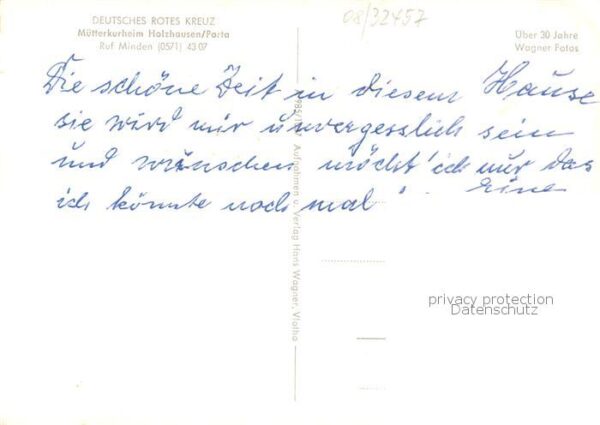 DEUTSCHES ROTES KREUZ
Mütterkurheim Holzhausen/Porta
Ruf Minden (0571) 43 07
08/32457
Über 30 Jahre
Wagner Fotos
Die schöne Zeit in diesem Hause
sie wird mir unvergesslich sein
und wünschen möcht' ich nur das eine
ich könnte noch mal!
Aufnahmen u. Verlag Hans Wagner, Vlotho
privacy protection
Datenschutz